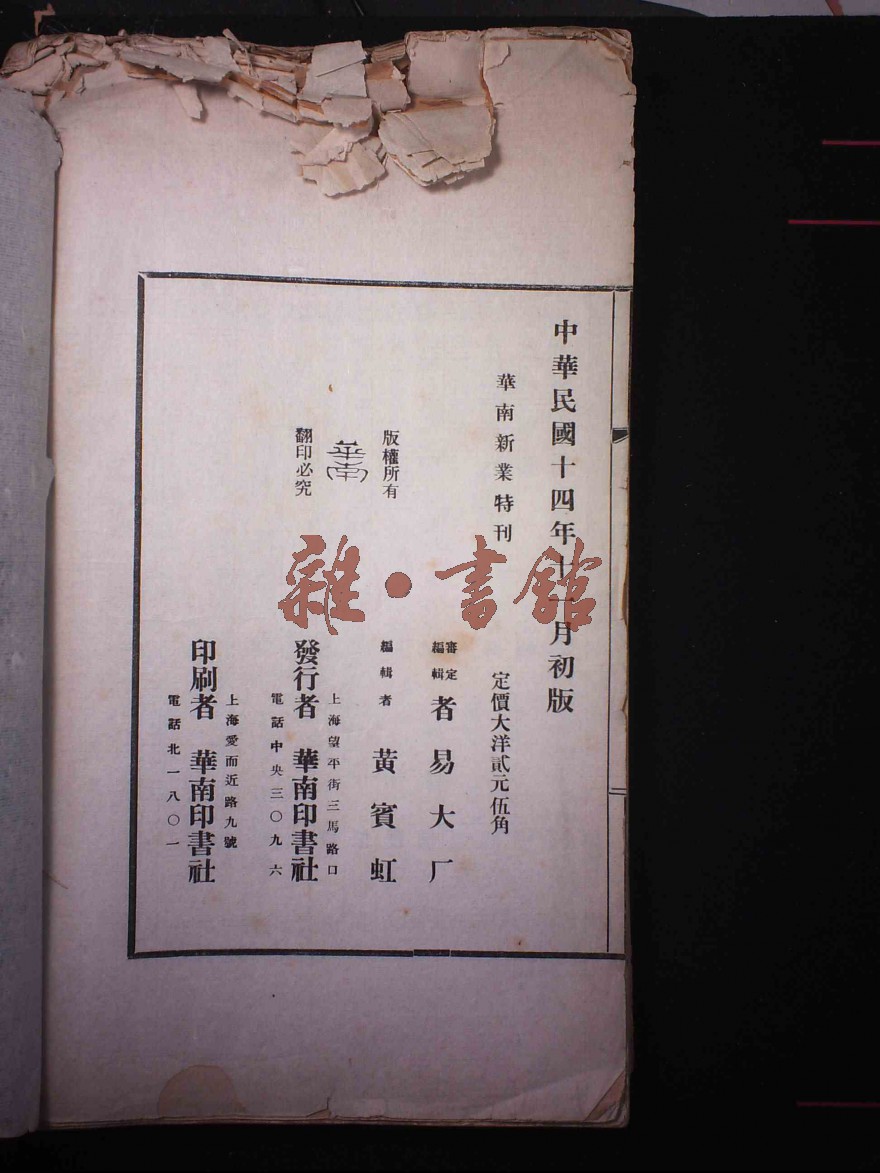 中華民國十四年十一月初版
華南新業特刊
定價大洋貳元伍角
審定
編輯
者 易大厂
版權所有
編輯者 黃賓虹
華南
翻印必究
上海望平街三馬路口
發行者 華南印書社
電話中央三〇九六
上海愛而近路九號
印刷者 華南印書社
電話北一八〇一
雜·書館